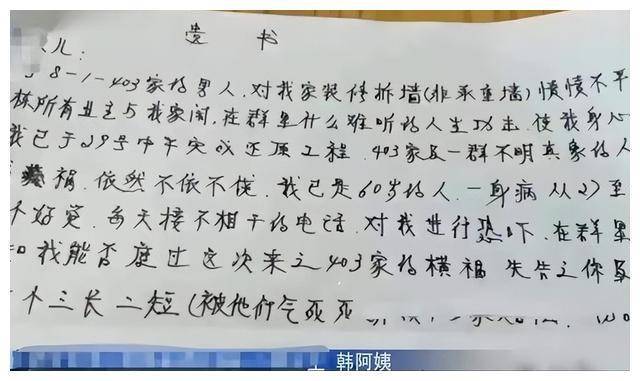 遗 书
儿：
8-1-403家的男人，对我家装修拆墙(非承重墙)愤愤不平
栋所有业主与我家闹，在群里什么难听的人生功击，使我身心
我已于29号中午完成还原工程，403家及一群不明真象的人
祸，依然不依不侥，我已是60岁的人，一身病从27至
不好觉，每天接不相干的电话，对我进行恐吓，在群里
知我能否度过这次来之403家的横祸，先告之你及
个三长二短(被他们气死
韩阿姨